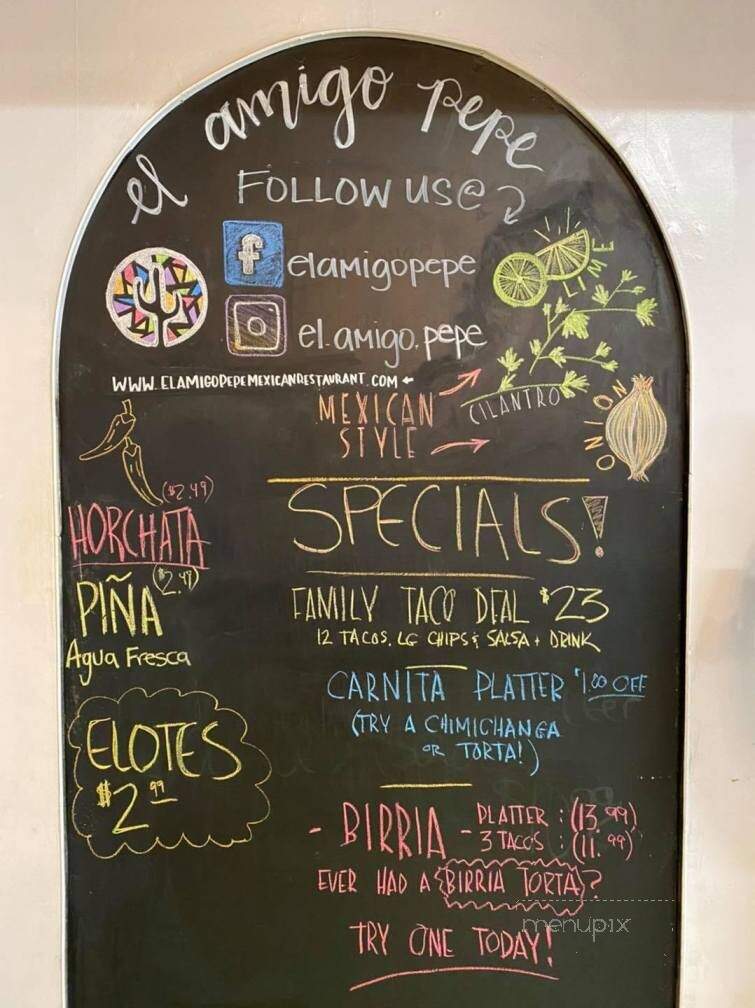 el amigo pepe
FOLLOW US@
f elamigopepe
el.amigo.pepe
LIME
WWW.ELAMIGOPEPEMEXICANRESTAURANT.COM
MEXICAN
STYLE
CILANTRO
ONION
($2.49)
HORCHATA
($2.49)
PIÑA
Agua Fresca
ELOTES
$2.99
SPECIALS!
FAMILY TACO DEAL $23
12 TACOS, LG CHIPS & SALSA + DRINK
CARNITA PLATTER $1.00 OFF
(TRY A CHIMICHANGA
OR TORTA!)
- BIRRIA - PLATTER : (13.99)
3 TACOS : (11.99)
EVER HAD A BIRRIA TORTA?
TRY ONE TODAY!
menupix